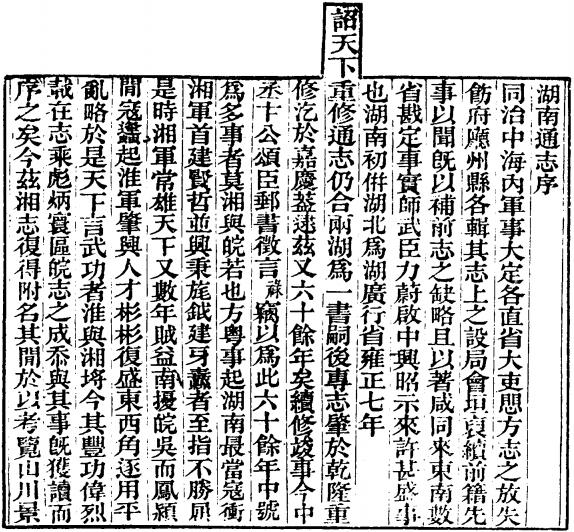 湖南通志序
同治中海內軍事大定各直省大吏閔方志之放失
飭府廳州縣各輯其志上之設局會垣裒續前籍先
事以聞旣以補前志之缺略且以著咸同來東南數
省戡定事實師武臣力蔚啟中興昭示來許甚盛事
也湖南初倂湖北爲湖廣行省雍正七年
詔天下重修通志仍合兩湖爲一書嗣後專志肇於乾隆重
修汔於嘉慶蓋逮茲又六十餘年矣續修竣事今中
丞卞公頌臣郵書徵言祿竊以爲此六十餘年中號
爲多事者莫湘與皖若也方粵事起湖南最當寇衝
湘軍首建賢哲並興秉旄鉞建牙纛者至指不勝屈
是時湘軍常雄天下又數年賊益南擾皖吳而鳳潁
閒寇蠭起淮軍肇興人才彬彬復盛東西角逐用平
亂略於是天下言武功者淮與湘埒今其豐功偉烈
載在志乘彪炳寰區皖志之成忝與其事旣獲讀而
序之矣今茲湘志復得附名其閒於以考覽山川景